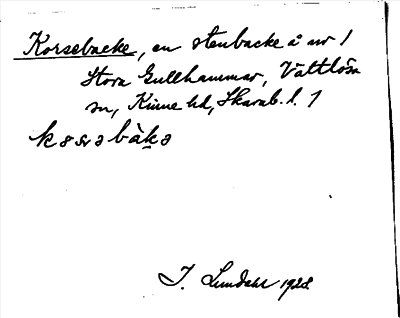 Korsebacke, en stenbacke å nr 1
Stora Gullhammar, Vättlösa
sn, Kinne hd, Skarab. l. 1
I. Lundahl 1928